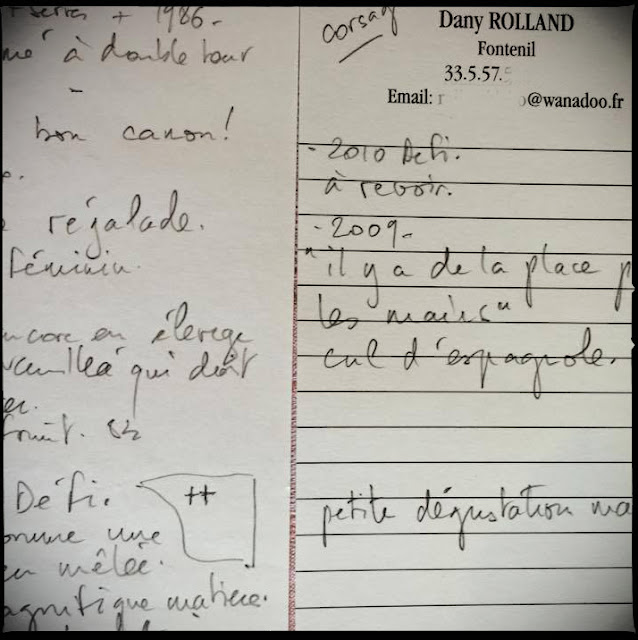 serres + 1986-
mé à double tour
bon canon!
régalade.
féminin.
encore en élevage
vanillé qui doit
fruit.
Défi. ++
comme une
en mêlée.
magnifique matière.
corsaq
Dany ROLLAND
Fontenil
33.5.57.
Email: r o@wanadoo.fr
- 2010 Defi.
à revoir.
- 2009-
"il y a de la place p
les mains"
cul d'espagnole.
petite dégustation ma